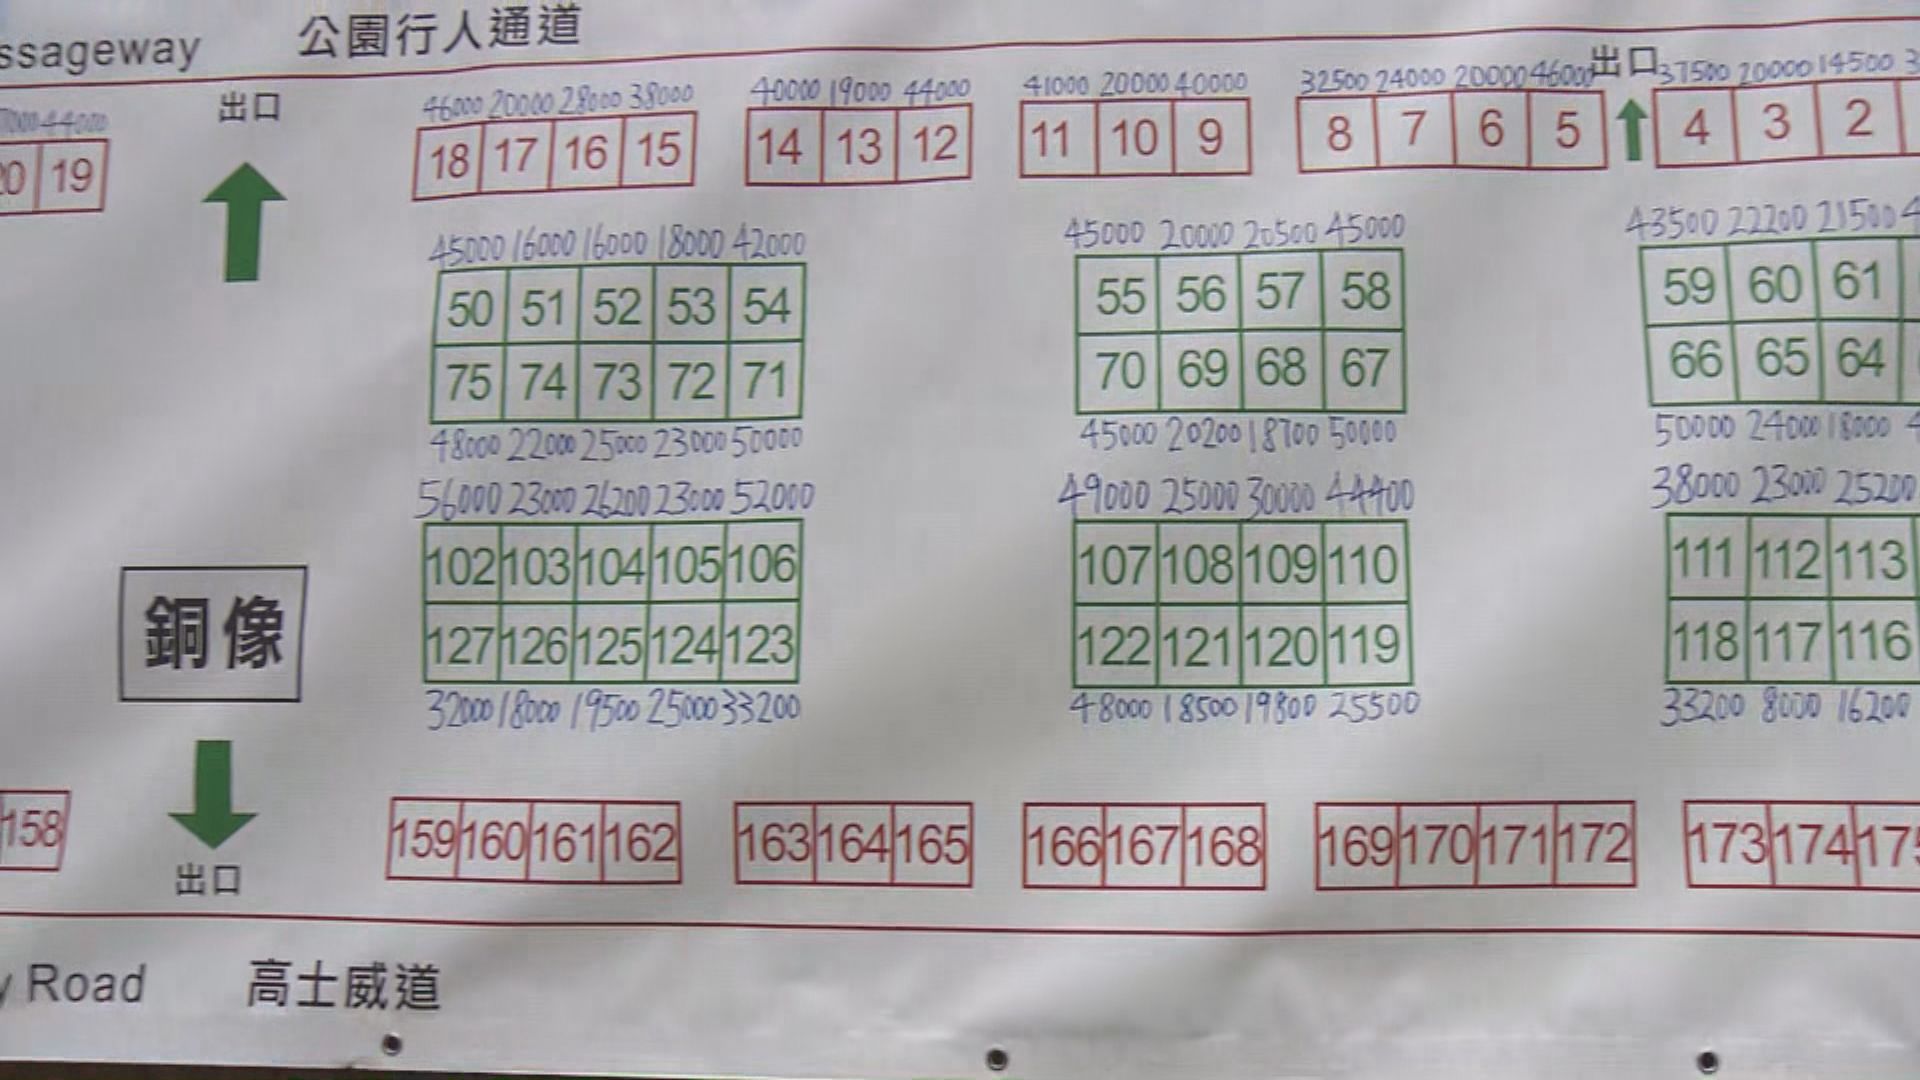 ssageway 公園行人通道
出口
出口
44000
46000 20000 28000 38000
40000 19000 44000
41000 20000 40000
32500 24000 20000 46000
37500 20000 14500
20 19
18 17 16 15
14 13 12
11 10 9
8 7 6 5
4 3 2
45000 16000 16000 18000 42000
45000 20000 20500 45000
43500 22200 21500
50 51 52 53 54
55 56 57 58
59 60 61
75 74 73 72 71
70 69 68 67
66 65 64
48000 22000 25000 23000 50000
45000 20200 18700 50000
50000 24000 18000
56000 23000 26200 23000 52000
49000 25000 30000 44400
38000 23000 25200
102 103 104 105 106
107 108 109 110
111 112 113
銅像
127 126 125 124 123
122 121 120 119
118 117 116
32000 18000 19500 25000 33200
48000 18500 19800 25500
33200 8000 16200
158
159 160 161 162
163 164 165
166 167 168
169 170 171 172
173 174 175
出口
y Road 高士威道